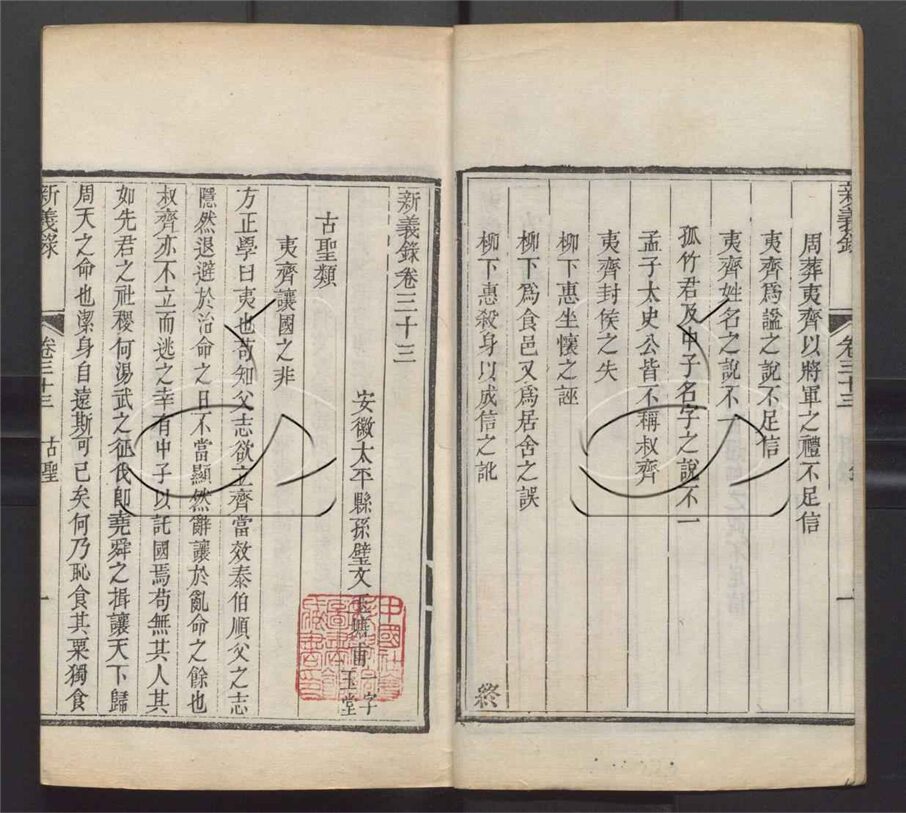 新義錄
卷三十三
一
周葬夷齊以將軍之禮不足信
夷齊為謚之說不足信
夷齊姓名之說不一
孤竹君及中子名字之說不一
孟子太史公皆不稱叔齊
夷齊封侯之失
柳下惠坐懷之誣
柳下為食邑又為居舍之誤
柳下惠殺身以成信之訛
終
新義錄卷三十三
安徽太平縣孫璧文玉塘甫一字玉堂
古聖類
夷齊讓國之非
方正學曰夷也苟知父志欲立齊當效泰伯順父之志
隱然退避於治命之日不當顯然辭讓於亂命之餘也
叔齊亦不立而逃之幸有中子以託國焉苟無其人其
如先君之社稷何湯武之征伐卽堯舜之揖讓天下歸
周天之命也潔身自遠斯可已矣何乃恥食其粟獨食
新義錄
卷三十三
古聖
一